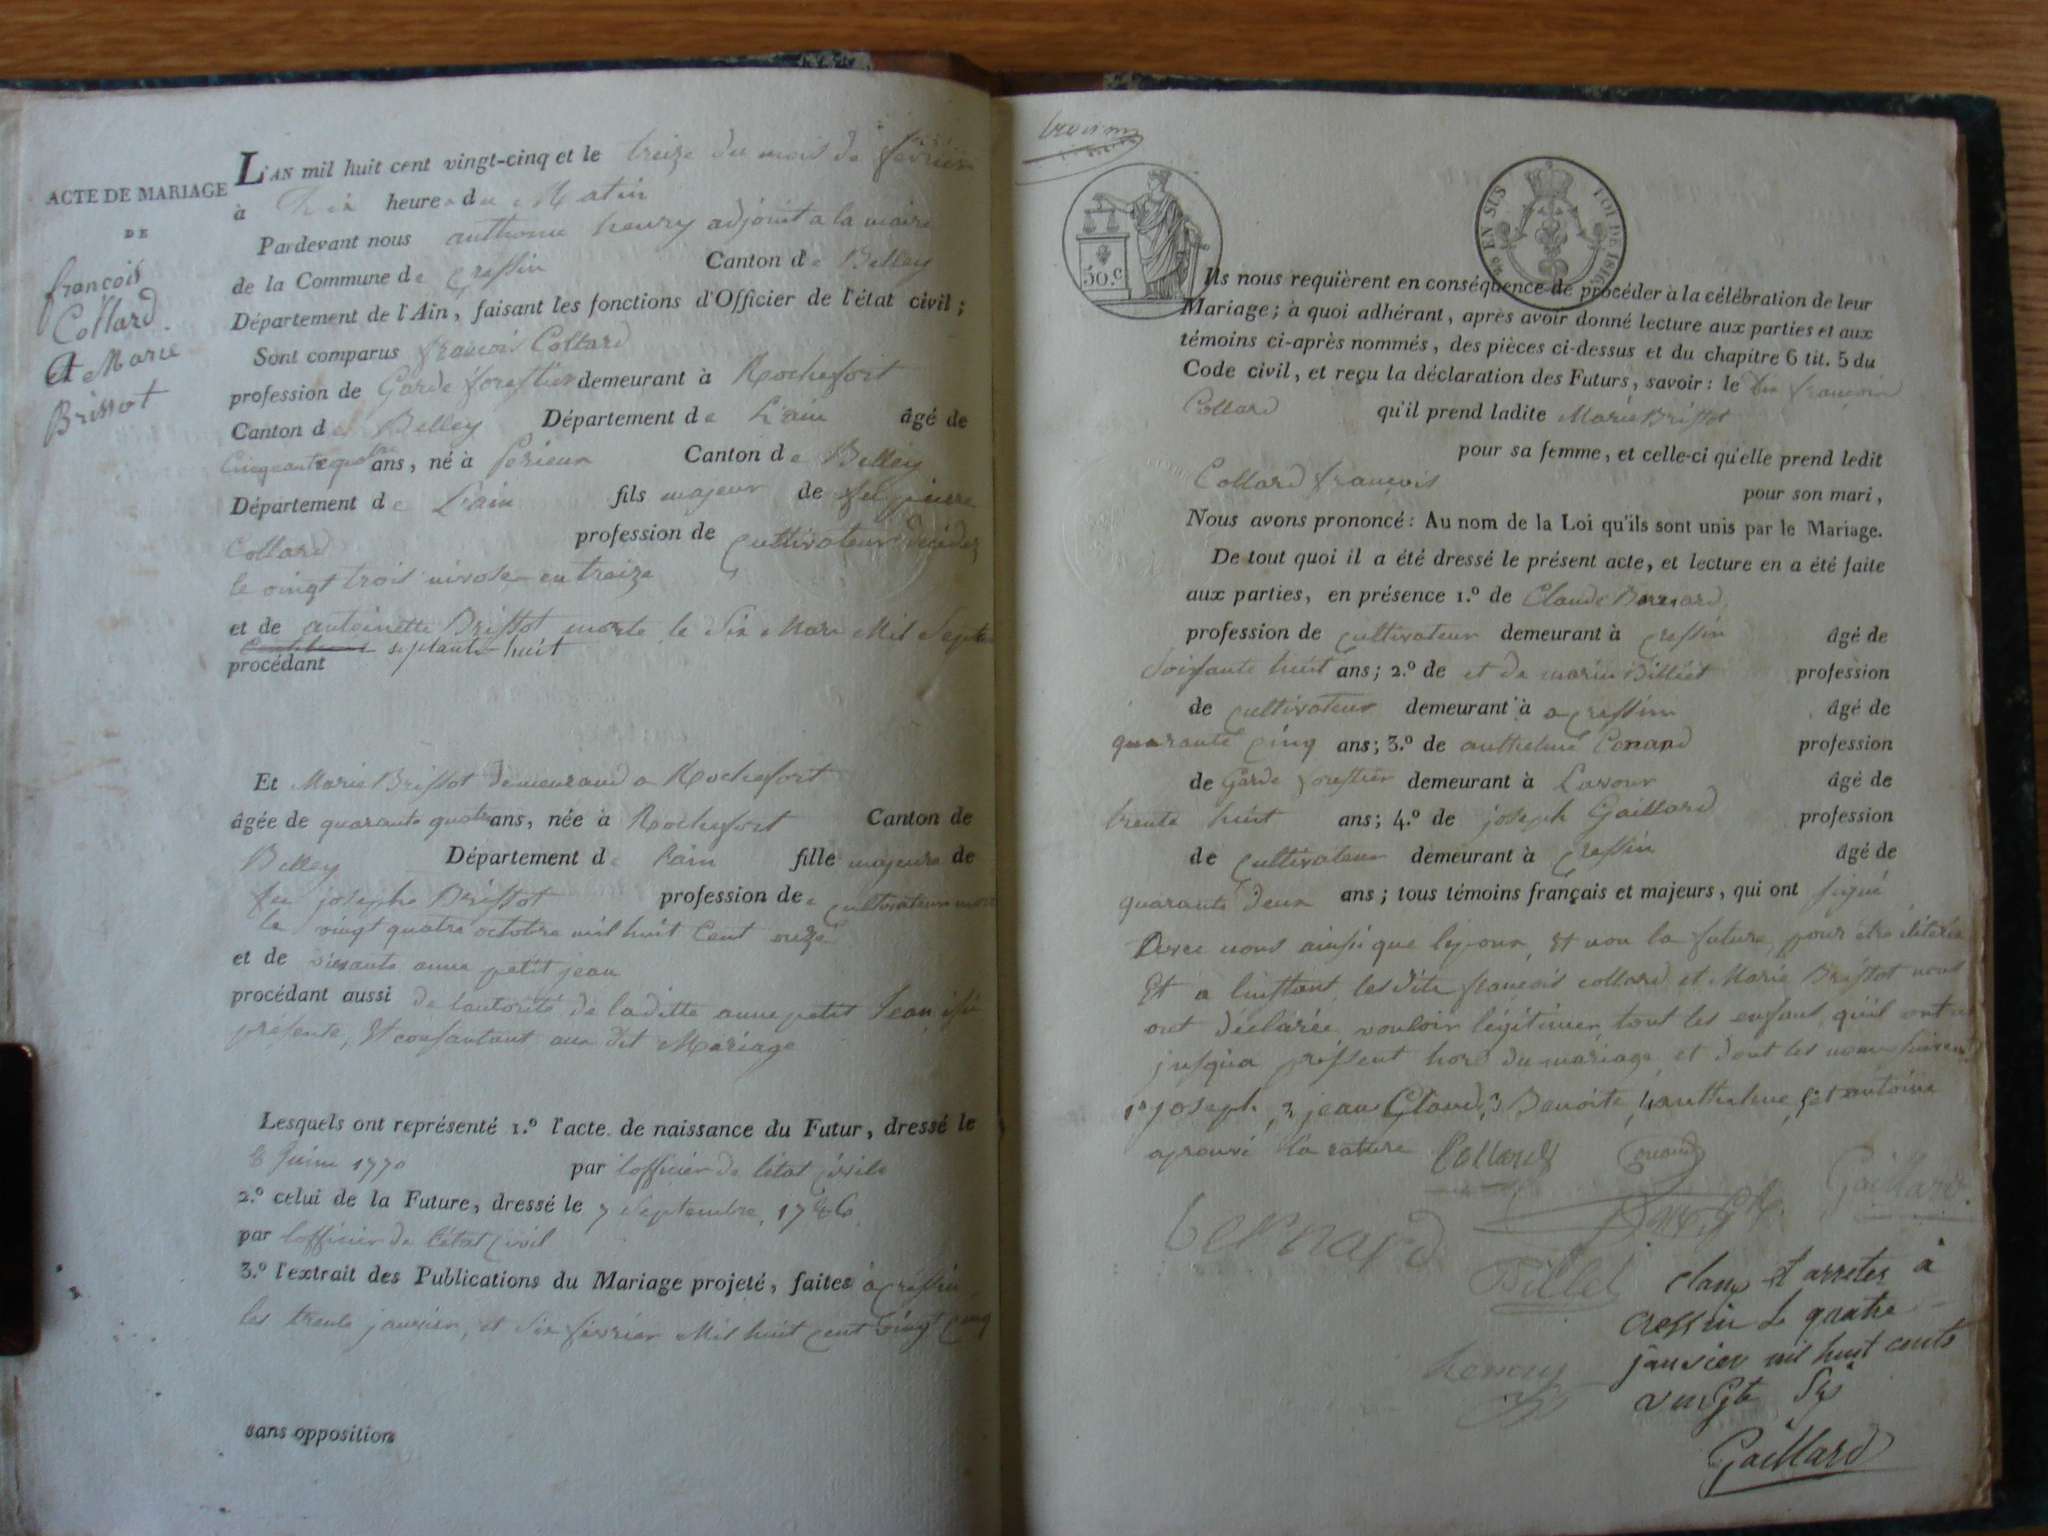 ACTE DE MARIAGE
DE
françois
Collard
et Marie
Brissot
L'AN mil huit cent vingt-cinq et le treize du mois de fevrier
à heures du Matin
Pardevant nous anthome henry adjoint a la maire
de la Commune de Cressin Canton de Belley
Département de l'Ain, faisant les fonctions d'Officier de l'état civil;
Sont comparus françois Collard
profession de Garde forestier demeurant à Rochefort
Canton de Belley Département de L'ain âgé de
Cinquante quatre ans, né à Canton de Belley
Département de L'ain fils majeur de feu pierre
Collard profession de cultivateur décédez
le vingt trois nivose en treize
et de antoinette Brissot morte le Six Mars Mil Sept
septante huit
procédant
Et Marie Brissot demeurand a Rochefort
âgée de quarante quatre ans, née à Rochefort Canton de
Belley Département de L'ain fille majeure de
feu joseph Brissot profession de cultivateur mort
le vingt quatre octobre mil huit Cent onze
et de vivante anne petit jean
procédant aussi de lautorité de laditte anne petit Jean ici
présente, Et consantant au dit Mariage
Lesquels ont représenté 1.º l'acte de naissance du Futur, dressé le
8 Juin 1770 par lofficier de létat Civile
2.º celui de la Future, dressé le 7 Septembre
par lofficier de létat Civil
3.º l'extrait des Publications du Mariage projeté, faites à Cressin
les trente janvier, et Six fevrier Mil huit cent vingt cinq
sans opposition
50 C.
EN SUS
LOI DE 1816
Ils nous requièrent en conséquence de procéder à la célébration de leur
Mariage; à quoi adhérant, après avoir donné lecture aux parties et aux
témoins ci-après nommés, des pièces ci-dessus et du chapitre 6 tit. 5 du
Code civil, et reçu la déclaration des Futurs, savoir: le françois
Collard qu'il prend ladite Marie Brissot
pour sa femme, et celle-ci qu'elle prend ledit
Collard françois pour son mari,
Nous avons prononcé: Au nom de la Loi qu'ils sont unis par le Mariage.
De tout quoi il a été dressé le présent acte, et lecture en a été faite
aux parties, en présence 1.º de Claude Bernard
profession de cultivateur demeurant à Cressin âgé de
Soixante huit ans; 2.º de et de marin Billiet profession
de cultivateur demeurant à a Cressin âgé de
quarante cinq ans; 3.º de anthelme Conand profession
de Garde forestier demeurant à Lavour âgé de
trente huit ans; 4.º de joseph Gaillard profession
de cultivateur demeurant à Cressin âgé de
quarante deux ans; tous témoins français et majeurs, qui ont signé
avec nous ainsi que lepoux, Et non la future, pour etre
Et a linstant, lesdits françois collard et Marie Brissot nous
ont déclarée vouloir légitimer tout les enfant quil ont eu
jusqua présent hors du mariage, et dont les noms suivent
1º joseph, 2 jean Claud, 3 Benoite, 4 anthelme, 5 et antoine
aprouvé la rature Collard Conand
Gaillard
bernard
Billet
henry
clans et arreter à
cressin le quatre
janvier mil huit cents
vingt Six
Gaillard